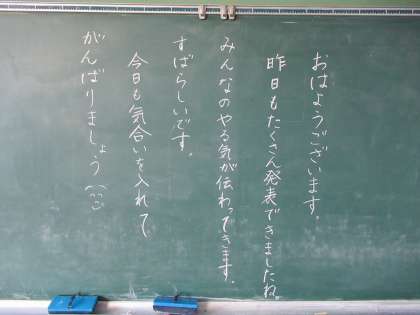 おはようございます。
昨日もたくさん発表できましたね。
みんなのやる気が伝わってきます。
すばらしいです。
今日も気合いを入れて
がんばりましょう